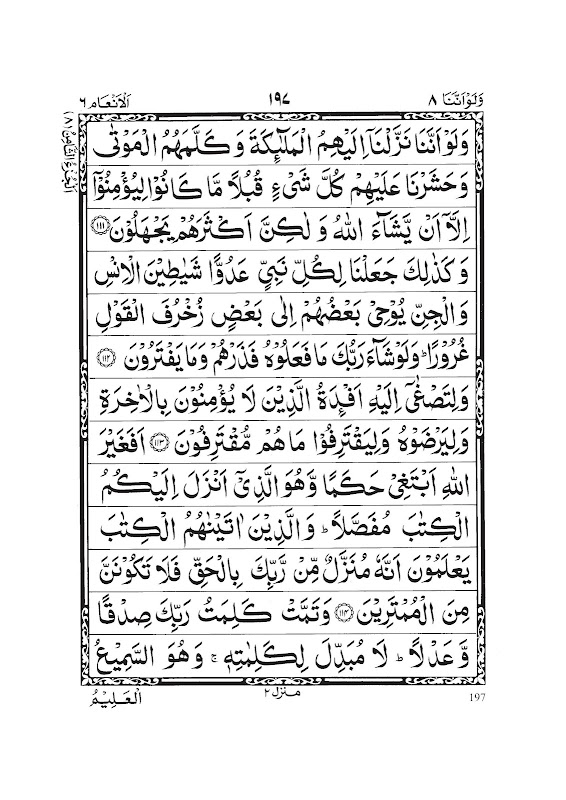 وَلَوْاَنَّنَا ٨ ١٩٧ اَلْاَنْعَام ٦
اَلْجُزْءُ الثَّامِنُ (٨)
وَلَوْ اَنَّنَا نَزَّلْنَاۤ اِلَيْهِمُ الْمَلٰٓئِكَةَ وَ كَلَّمَهُمُ الْمَوْتٰى
وَ حَشَرْنَا عَلَيْهِمْ كُلَّ شَىْءٍ قُبُلًا مَّا كَانُوْا لِيُؤْمِنُوْۤا
اِلَّاۤ اَنْ يَّشَآءَ اللّٰهُ وَ لٰكِنَّ اَكْثَرَهُمْ يَجْهَلُوْنَ ﴿١١١﴾
وَ كَذٰلِكَ جَعَلْنَا لِكُلِّ نَبِىٍّ عَدُوًّا شَيٰطِيْنَ الْاِنْسِ
وَ الْجِنِّ يُوْحِىْ بَعْضُهُمْ اِلٰى بَعْضٍ زُخْرُفَ الْقَوْلِ
غُرُوْرًا ؕ وَ لَوْ شَآءَ رَبُّكَ مَا فَعَلُوْهُ فَذَرْهُمْ وَ مَا يَفْتَرُوْنَ ﴿١١٢﴾
وَ لِتَصْغٰۤى اِلَيْهِ اَفْـِٕدَةُ الَّذِيْنَ لَا يُؤْمِنُوْنَ بِالْاٰخِرَةِ
وَ لِيَرْضَوْهُ وَ لِيَقْتَرِفُوْا مَا هُمْ مُّقْتَرِفُوْنَ ﴿١١٣﴾ اَفَغَيْرَ
اللّٰهِ اَبْتَغِىْ حَكَمًا وَّ هُوَ الَّذِىْۤ اَنْزَلَ اِلَيْكُمُ
الْكِتٰبَ مُفَصَّلًا ؕ وَ الَّذِيْنَ اٰتَيْنٰهُمُ الْكِتٰبَ
يَعْلَمُوْنَ اَنَّهٗ مُنَزَّلٌ مِّنْ رَّبِّكَ بِالْحَقِّ فَلَا تَكُوْنَنَّ
مِنَ الْمُمْتَرِيْنَ ﴿١١٤﴾ وَ تَمَّتْ كَلِمَتُ رَبِّكَ صِدْقًا
وَّ عَدْلًا ؕ لَا مُبَدِّلَ لِكَلِمٰتِهٖ ۚ وَ هُوَ السَّمِيْعُ
الْعَلِيْمُ
منزل ٢
197